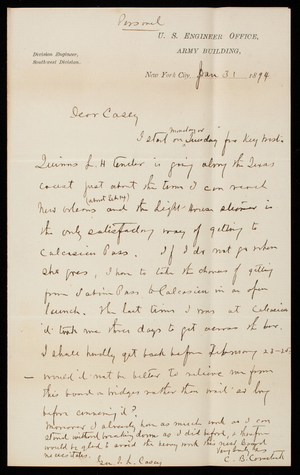 Personal
U. S. Engineer Office,
Army Building,
Division Engineer,
Southwest Division.
New York City, Jan 31 1894
Dear Casey
Monday or
I start on Tuesday for Key West.
L. H. Tender is going along the Texas
coast just about the time I can reach
(about Feb 17)
New Orleans and the Light-House steamer is
the only satisfactory way of getting to
Calcasieu Pass. If I do not go when
she goes, I have to take the chances of getting
from Sabine Pass to Calcasieu in an open
launch. The last time I was at Calcasieu
it took me three days to get across the bar.
I shall hardly get back before February 23-25.
would it not be better to relieve me from
this board on bridges rather than wait so long
before convening it?
Moreover I already have as much work as I can
stand without breaking down as I did before, & therefore
would be glad to avoid the heavy work this new Board
necessitates.
Very truly yours
C. B. Comstock
Gen. T. L. Casey